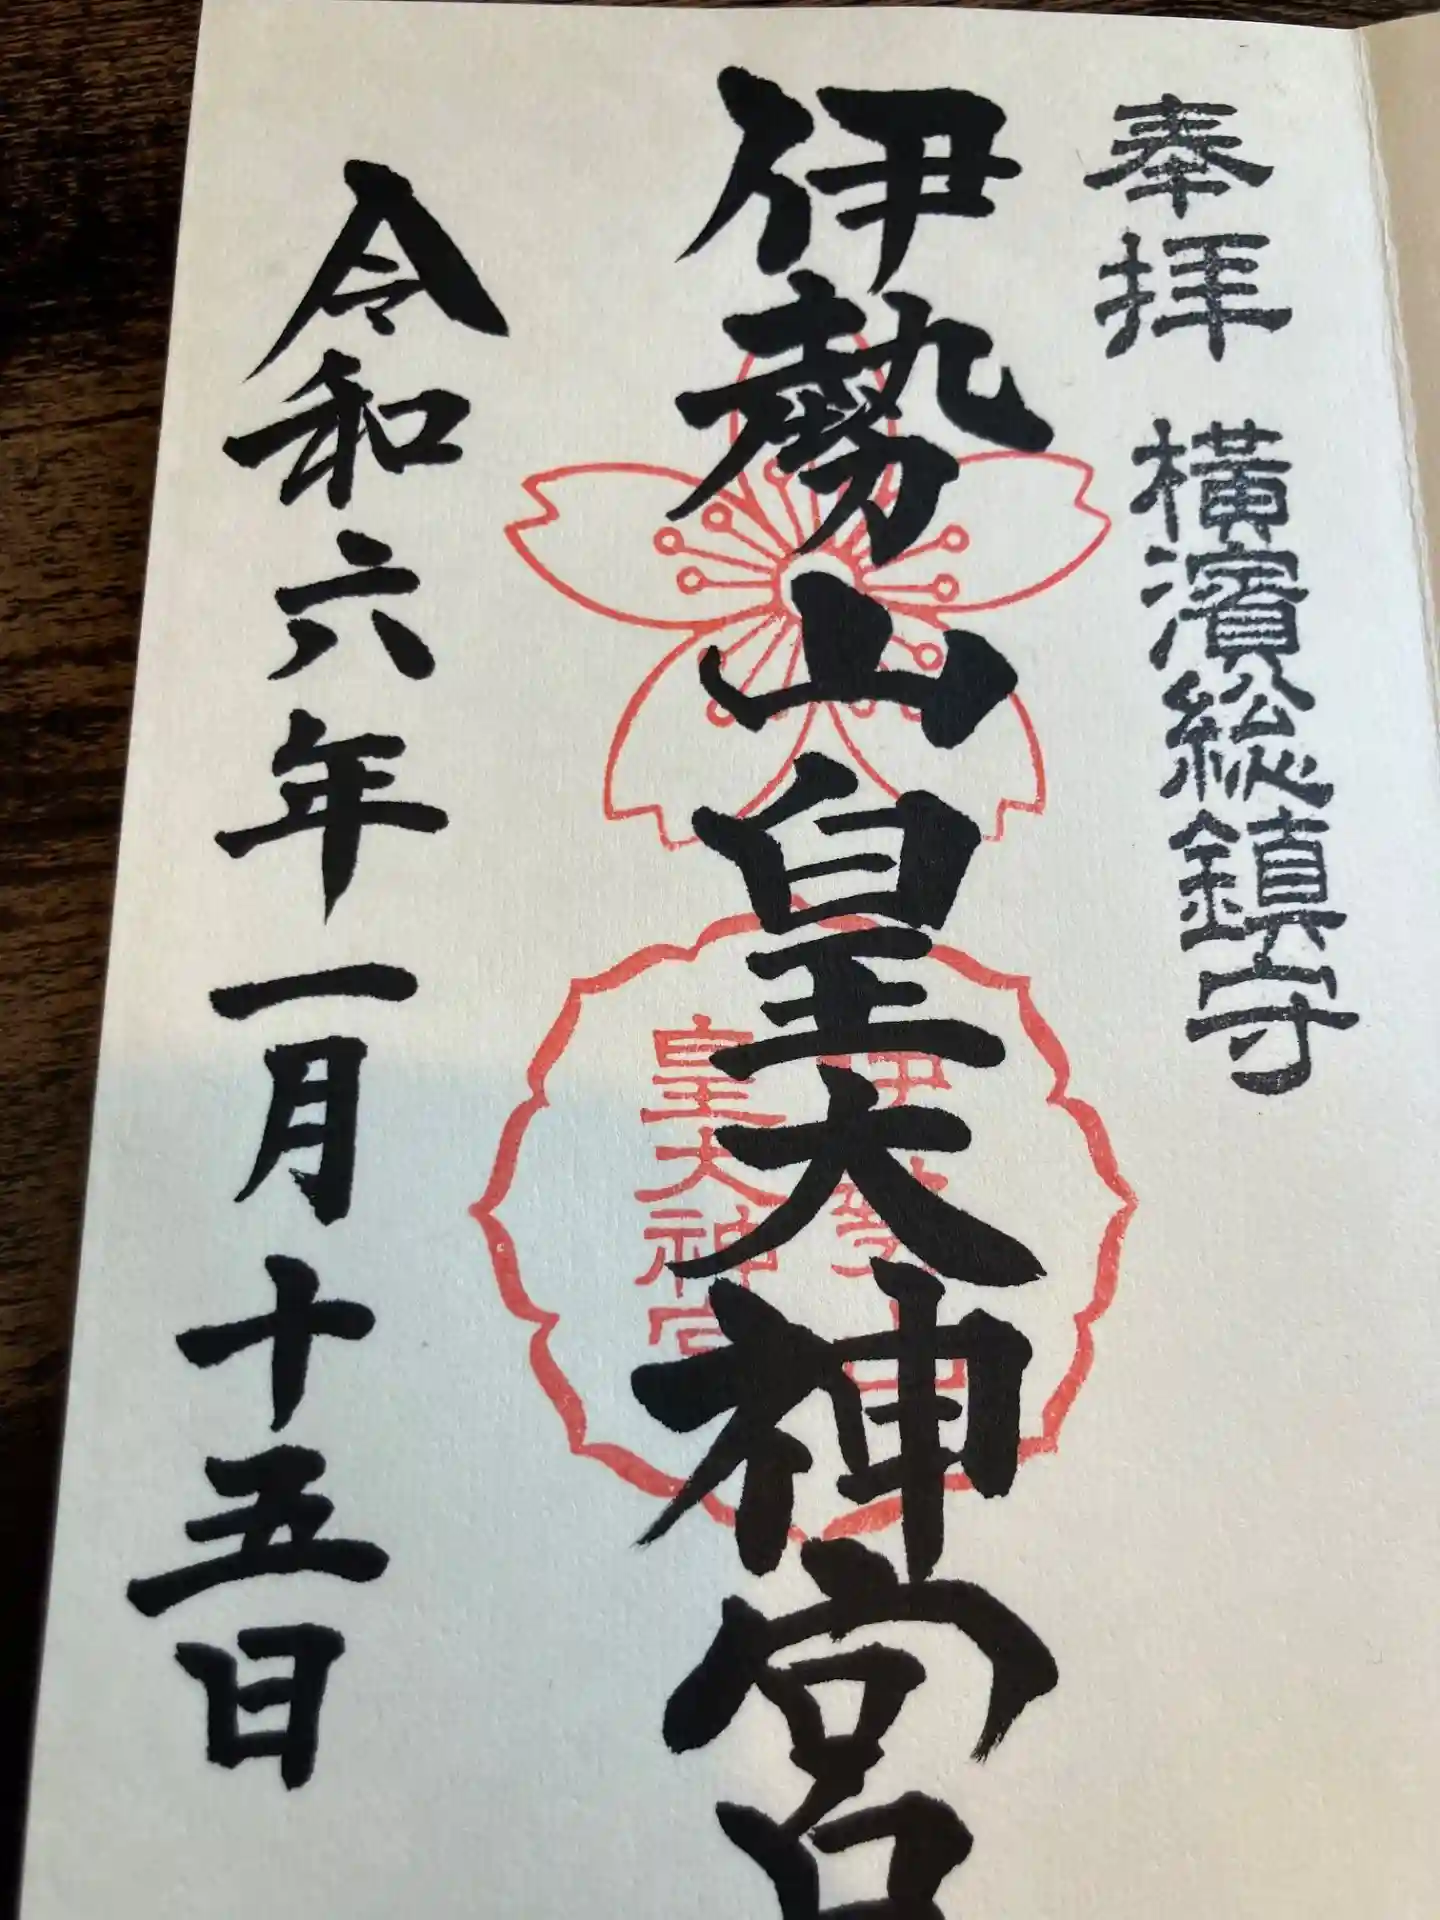 奉拝 横濱総鎮守
伊勢山皇大神宮
伊勢山
皇大神宮
令和六年一月十五日